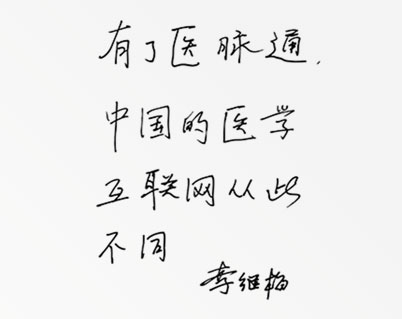 有了医脉通.
中国的医学
互联网从此
不同
李继梅